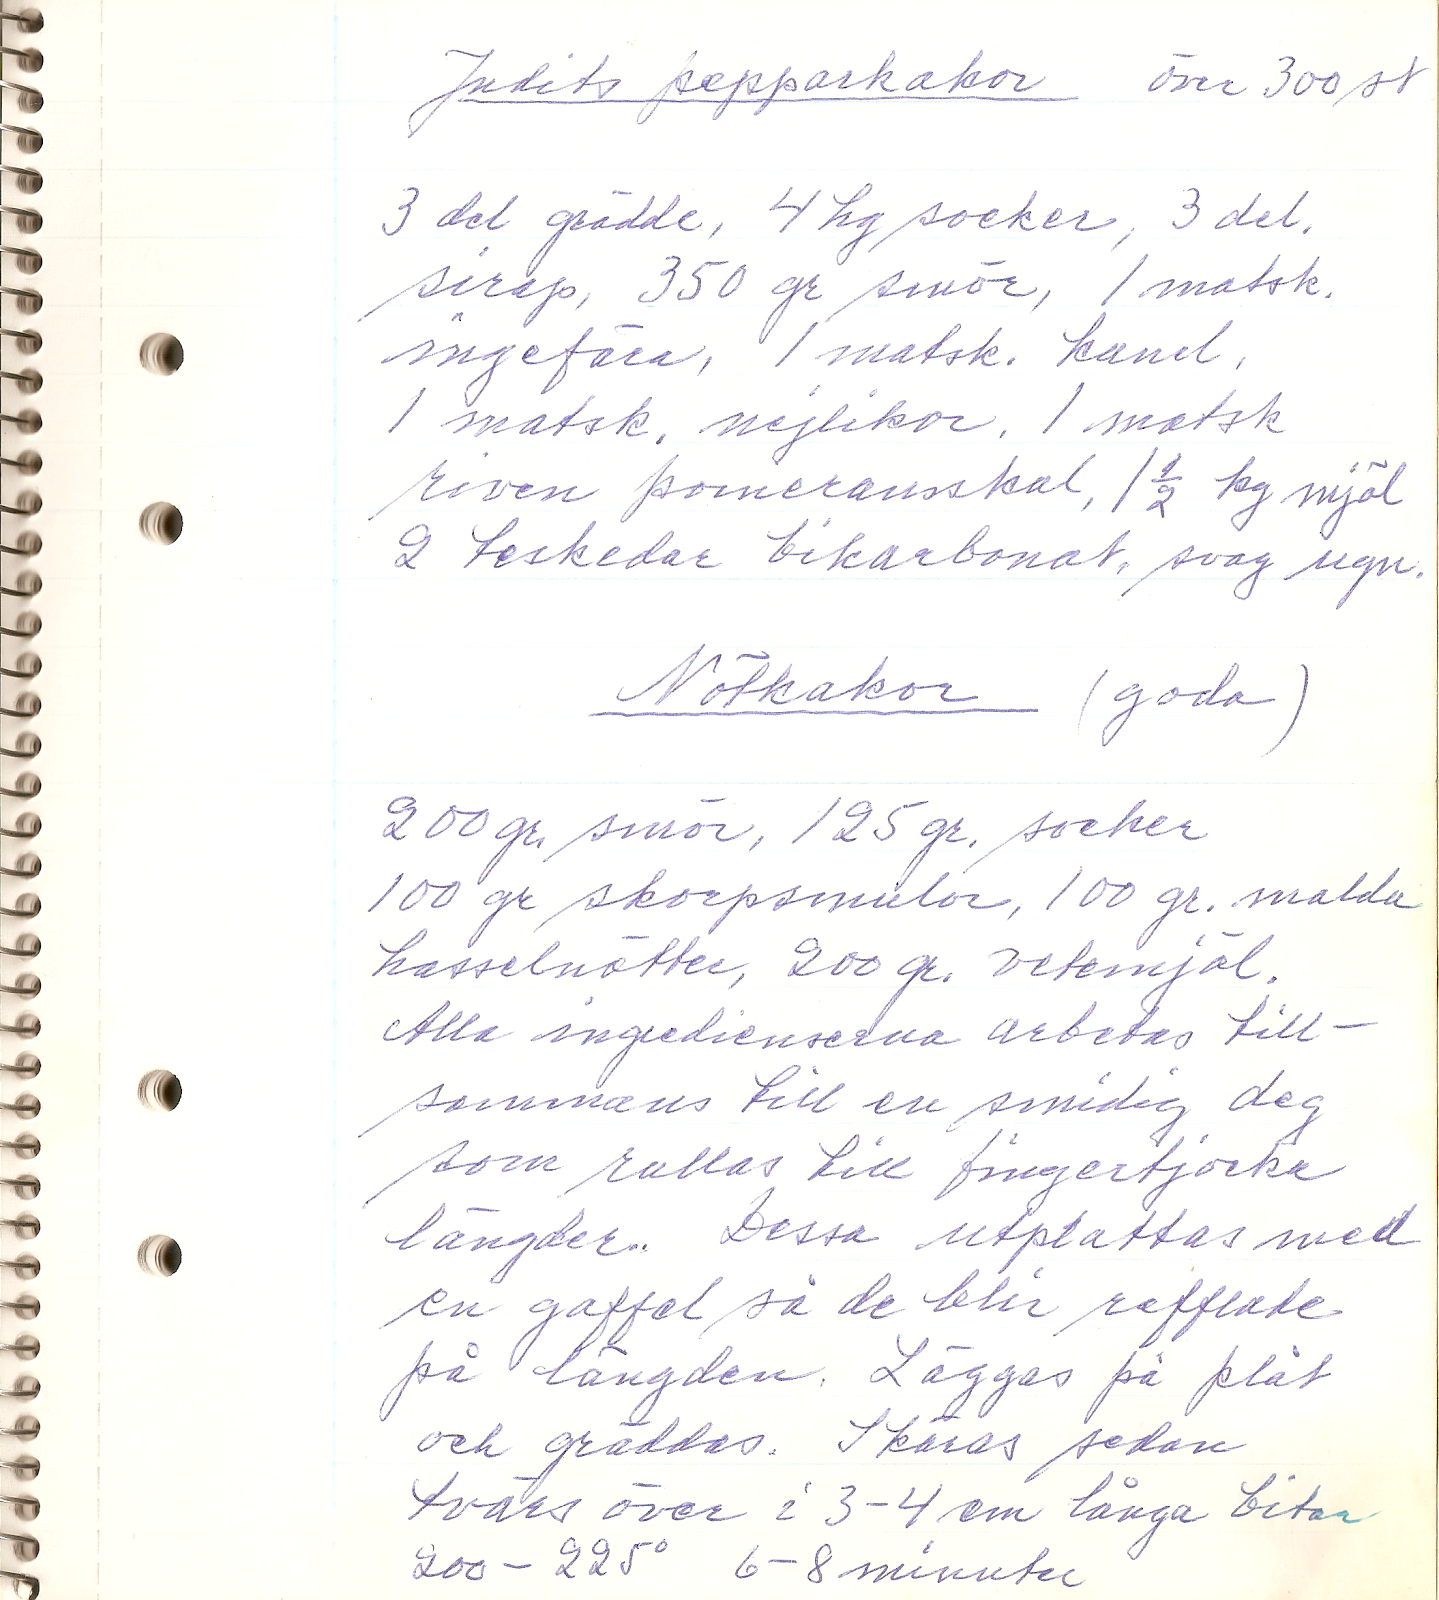 Judits pepparkakor över 300 st
3 del grädde, 4 hg socker, 3 del.
sirap, 350 gr smör, 1 matsk.
ingefära, 1 matsk. kanel,
1 matsk. nejlikor, 1 matsk
riven pomeransskal, 1 1/2 kg mjöl
2 teskedar bikarbonat, svag ugn.
Nötkakor (goda)
200 gr. smör, 125 gr. socker
100 gr skorpsmulor, 100 gr. malda
hasselnötter, 200 gr. vetemjöl.
Alla ingredienserna arbetas till-
sammans till en smidig deg
som rullas till fingertjocka
längder.. Dessa utplattas med
en gaffel så de blir refflade
på längden. Läggas på plåt
och gräddas. Skäras sedan
tvärs över i 3-4 cm långa bitar
200-225° 6-8 minuter